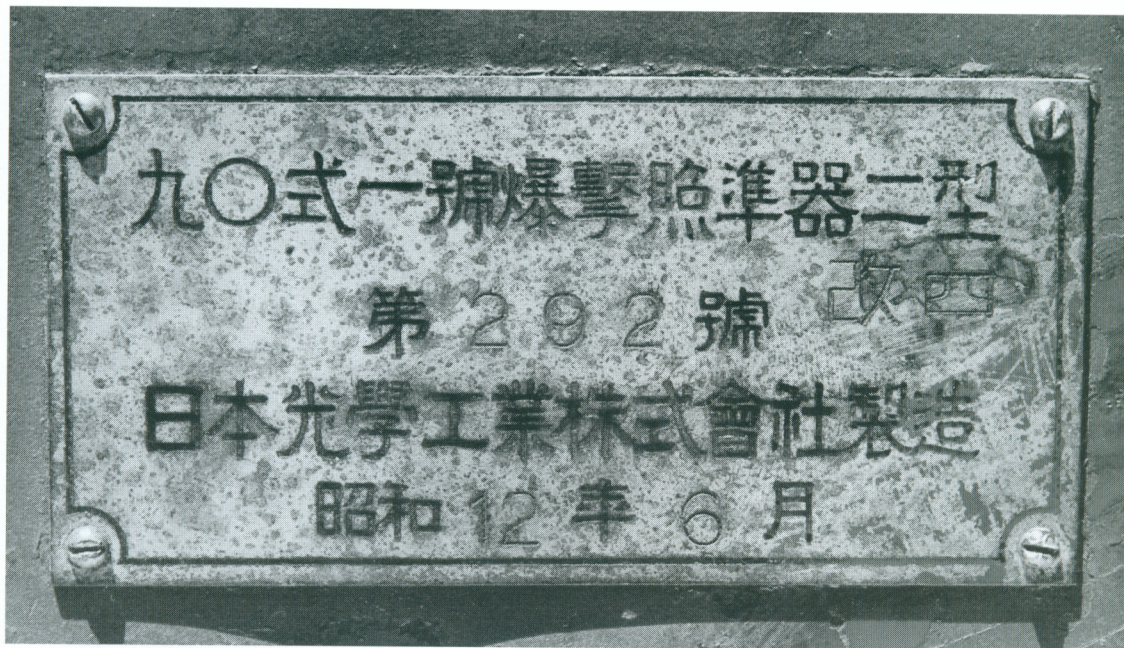 九〇式一號爆擊照準器二型
改四
第292號
日本光學工業株式會社製造
昭和12年6月